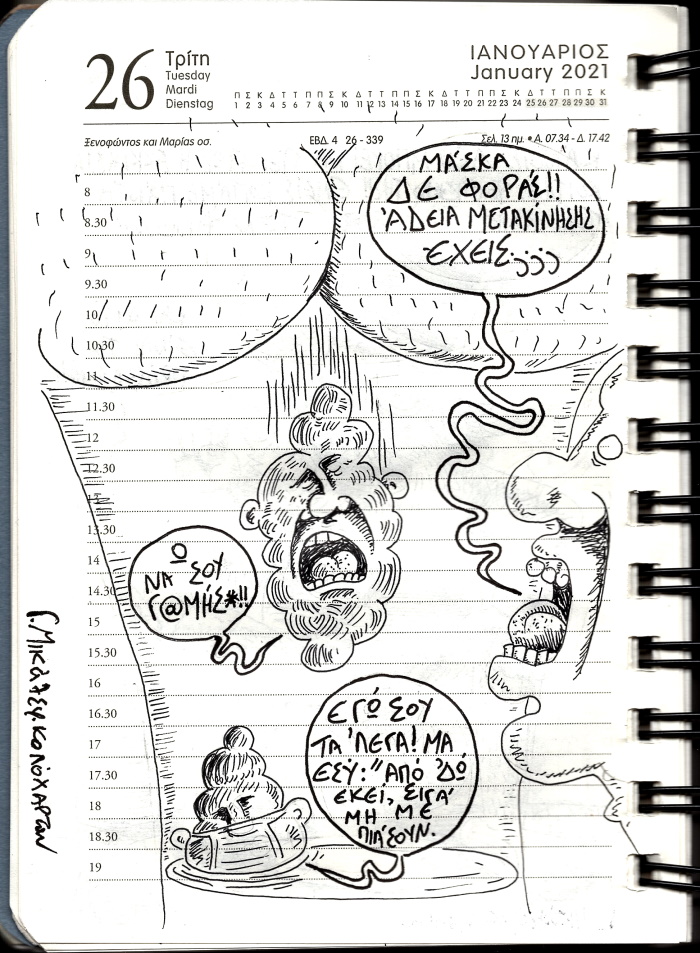 26
Τρίτη
Tuesday
Mardi
Dienstag
ΙΑΝΟΥΑΡΙΟΣ
January 2021
Π Σ Κ Δ Τ Τ Π Π Σ Κ Δ Τ Τ Π Π Σ Κ Δ Τ Τ Π Π Σ Κ Δ Τ Τ Π Π Σ Κ
1 2 3 4 5 6 7 8 9 10 11 12 13 14 15 16 17 18 19 20 21 22 23 24 25 26 27 28 29 30 31
Ξενοφώντος και Μαρίας οσ.
ΕΒΔ. 4 26 - 339
Σελ. 13 ημ. • Α. 07.34 - Δ. 17.42
ΜΑΣΚΑ
ΔΕ ΦΟΡΑΣ!!
ΆΔΕΙΑ ΜΕΤΑΚΙΝΗΣΗΣ
ΕΧΕΙΣ;;;;
8
8.30
9
9.30
10
10.30
11
11.30
12
12.30
13
13.30
14
14.30
15
15.30
16
16.30
17
17.30
18
18.30
19
Ο
ΝΑ ΣΟΥ
Γ@ΜΗΣ*!!
ΕΓΏ ΣΟΥ
ΤΑ 'ΛΕΓΑ! ΜΑ
ΕΣΥ: "ΑΠΟ 'ΔΩ
ΕΚΕΙ, ΣΙΓΑ
ΜΗ ΜΕ
ΠΙΆΣΟΥΝ.